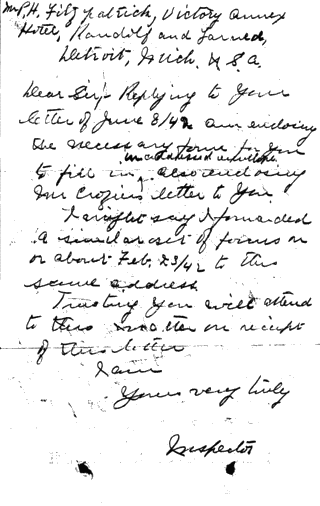 Mr P. H. Fitzpatrick, Victory Annex
Hotel, Randolf and Larned,
Detroit, Mich. U S a.
Dear Sir;- Replying to Your
letter of June 8/42 am enclosing
the necessary forms for You
in addressed envelope
to fill in, also enclosing
Mr letter to You.
I might say I forwarded
a similar set of forms on
or about Feb. 23/42 to this
same address
Trusting You will attend
to this matter on receipt
of this letter
I am
Yours very truly
Inspector